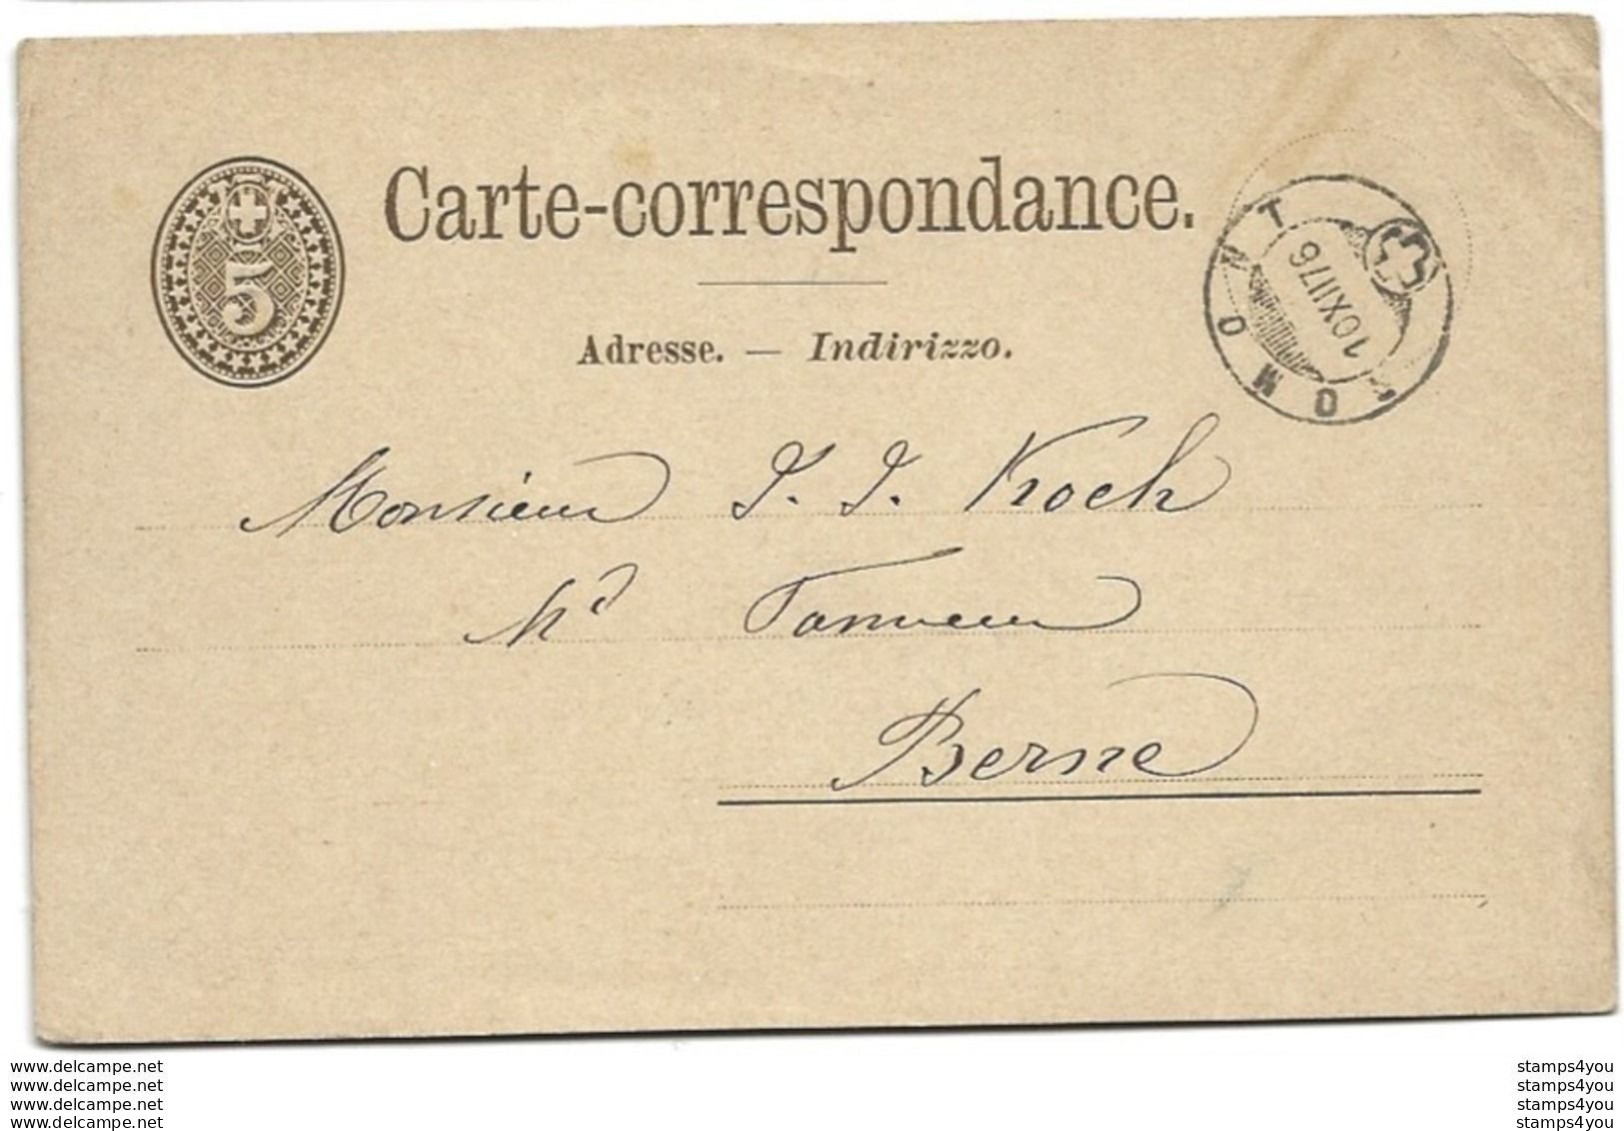 5
Carte-correspondance.
Adresse. — Indirizzo.
ROMONT
10 XII 76
Monsieur J. J. Koch
Md Tanneur
Berne
www.delcampe.net
www.delcampe.net
www.delcampe.net
www.delcampe.net
stamps4you
stamps4you
stamps4you
stamps4you